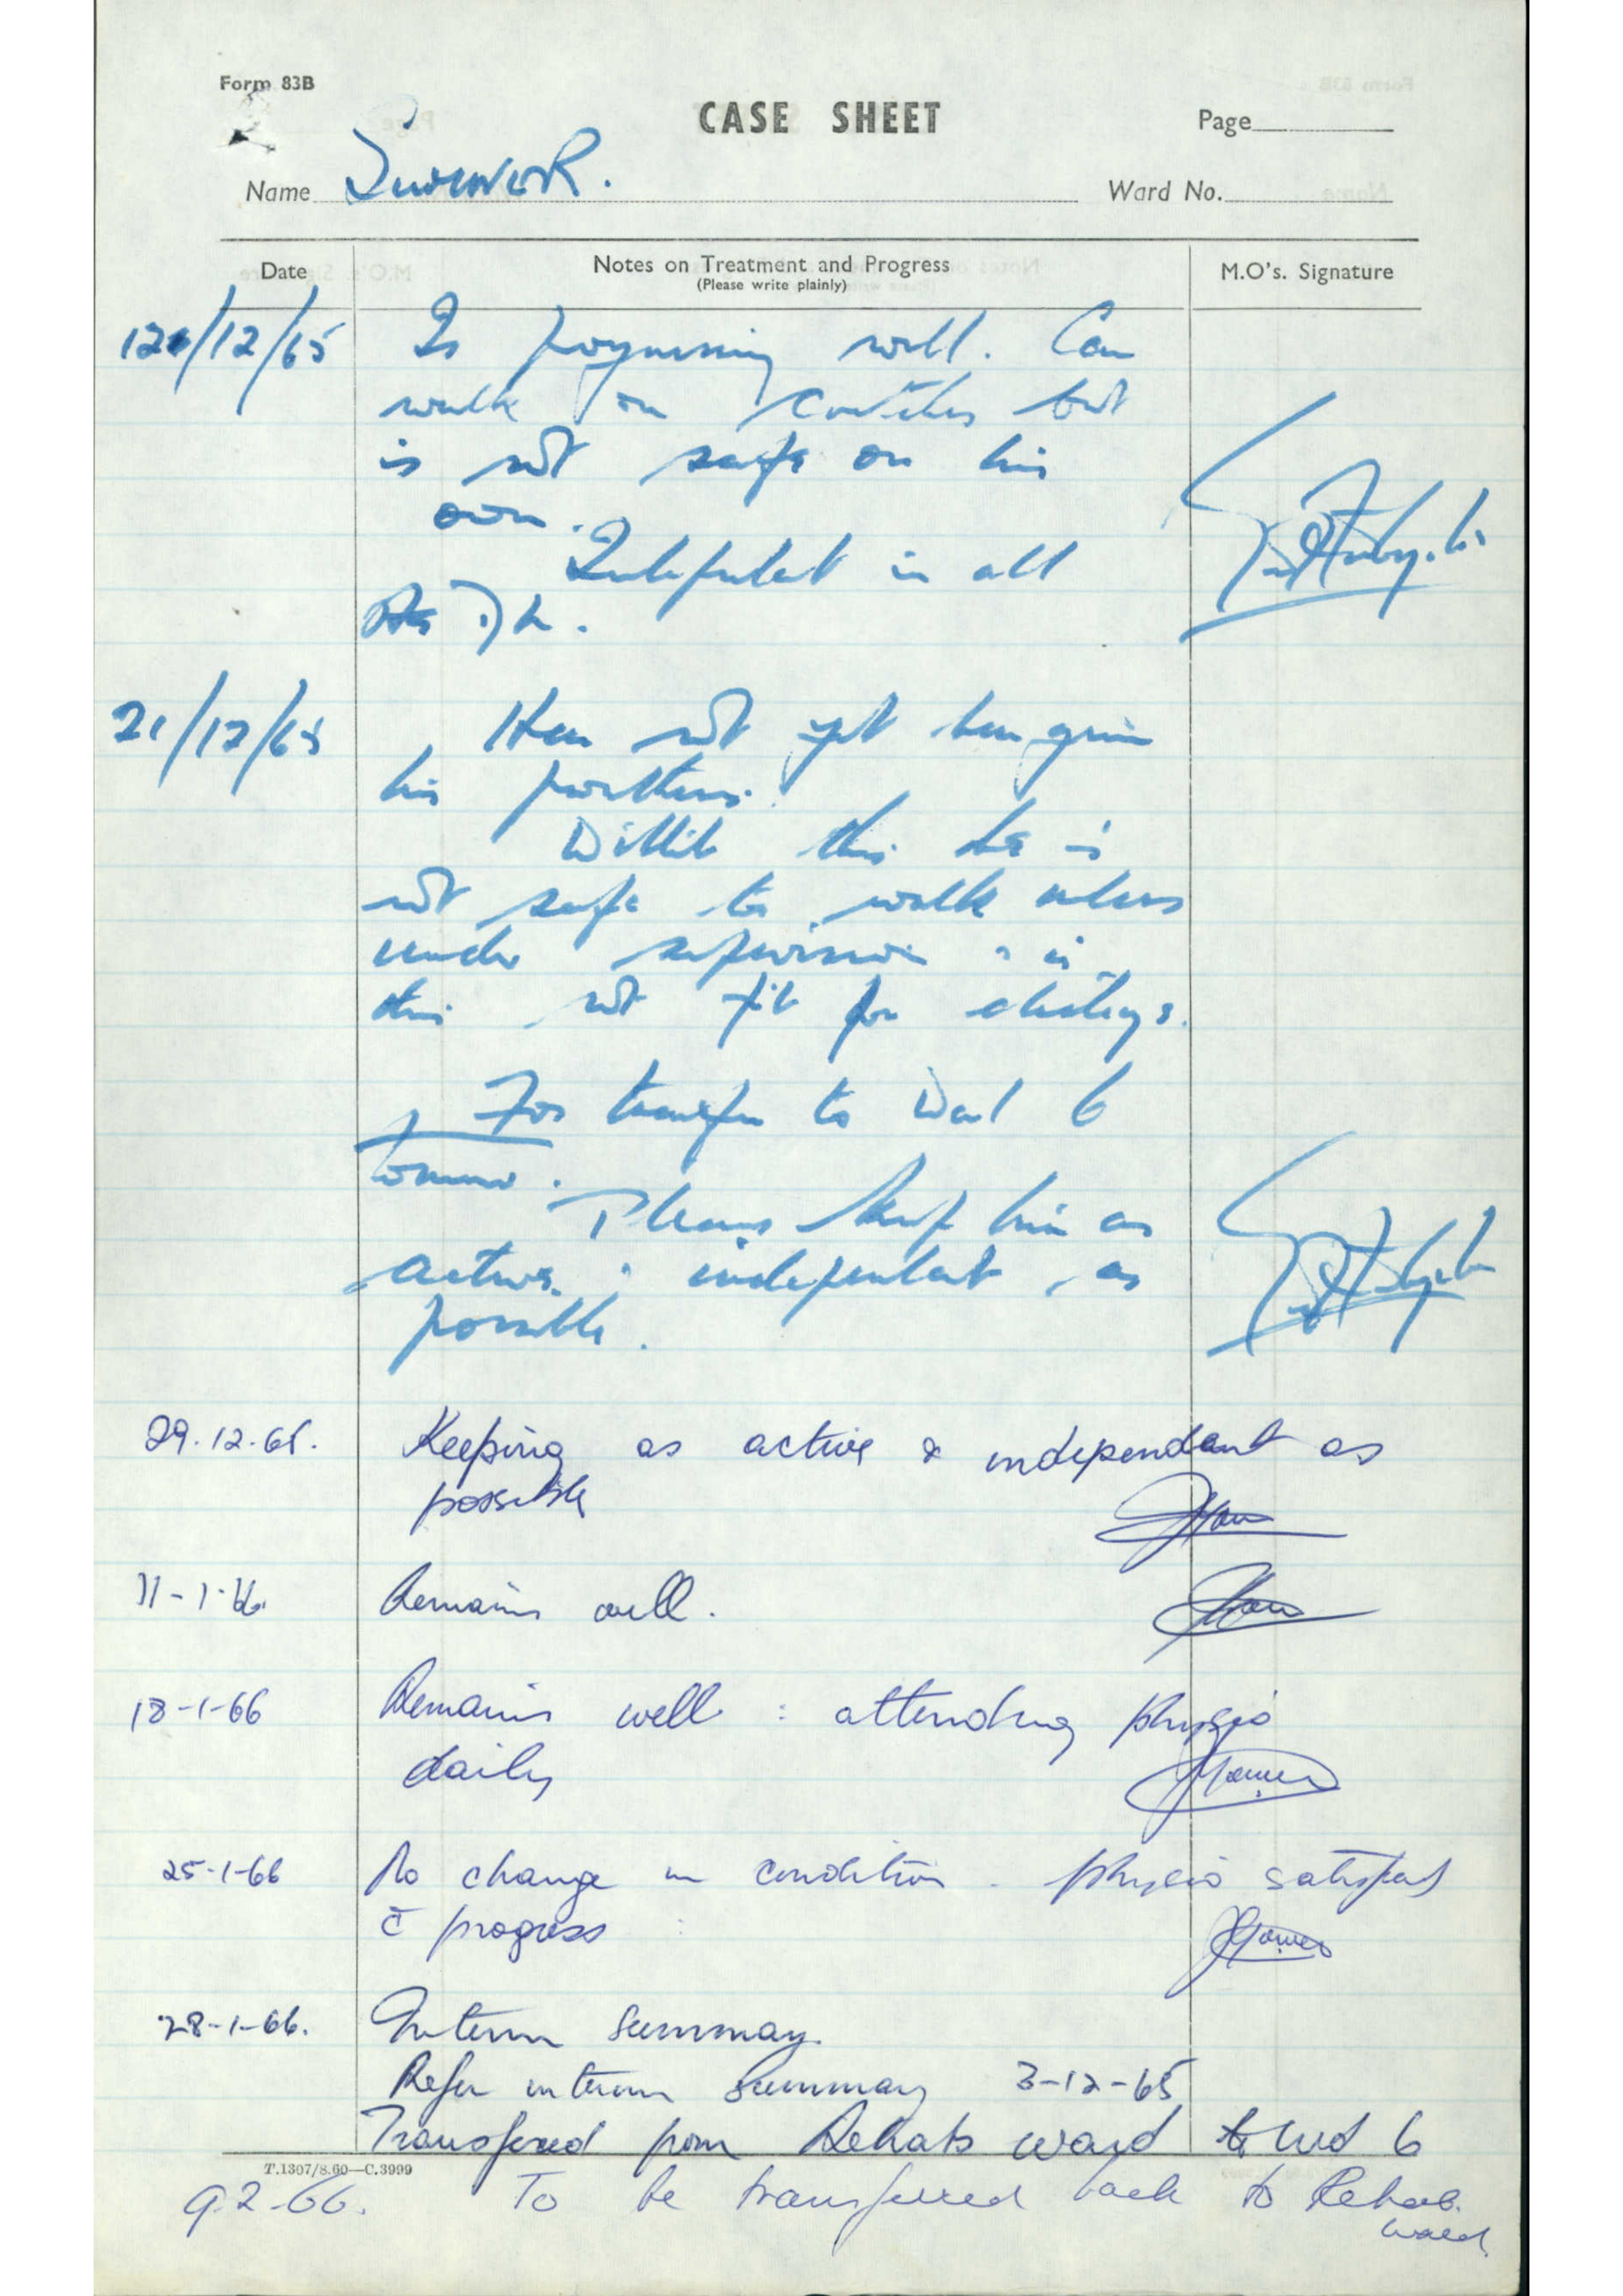 Form 83B
CASE SHEET
Page
Name
Ward No.
Date
Notes on Treatment and Progress
(Please write plainly)
M.O's. Signature
/12/65 Is progressing well. Can
walk on crutches but
is not safe on his
own.
Independent in all
21/12/65 Has not yet been given
his
Until this he is
not safe to walk unless
under supervision & is
thus not fit for
For transfer to Ward 6
tomorrow.
Please keep him as
active & independent as
possible.
29.12.65. Keeping as active & independant as
possible
11-1-66. Remains well.
18-1-66 Remains well : attending physio
daily
25-1-66 No change in condition. physio satisfied
c̄ progress
28-1-66. Interim Summary.
Refer interim Summary 3-12-65
Transferred from Rehab ward to Wd 6
T.1307/8.60—C.3999
9.2.66. To be transferred back to Rehab.
ward